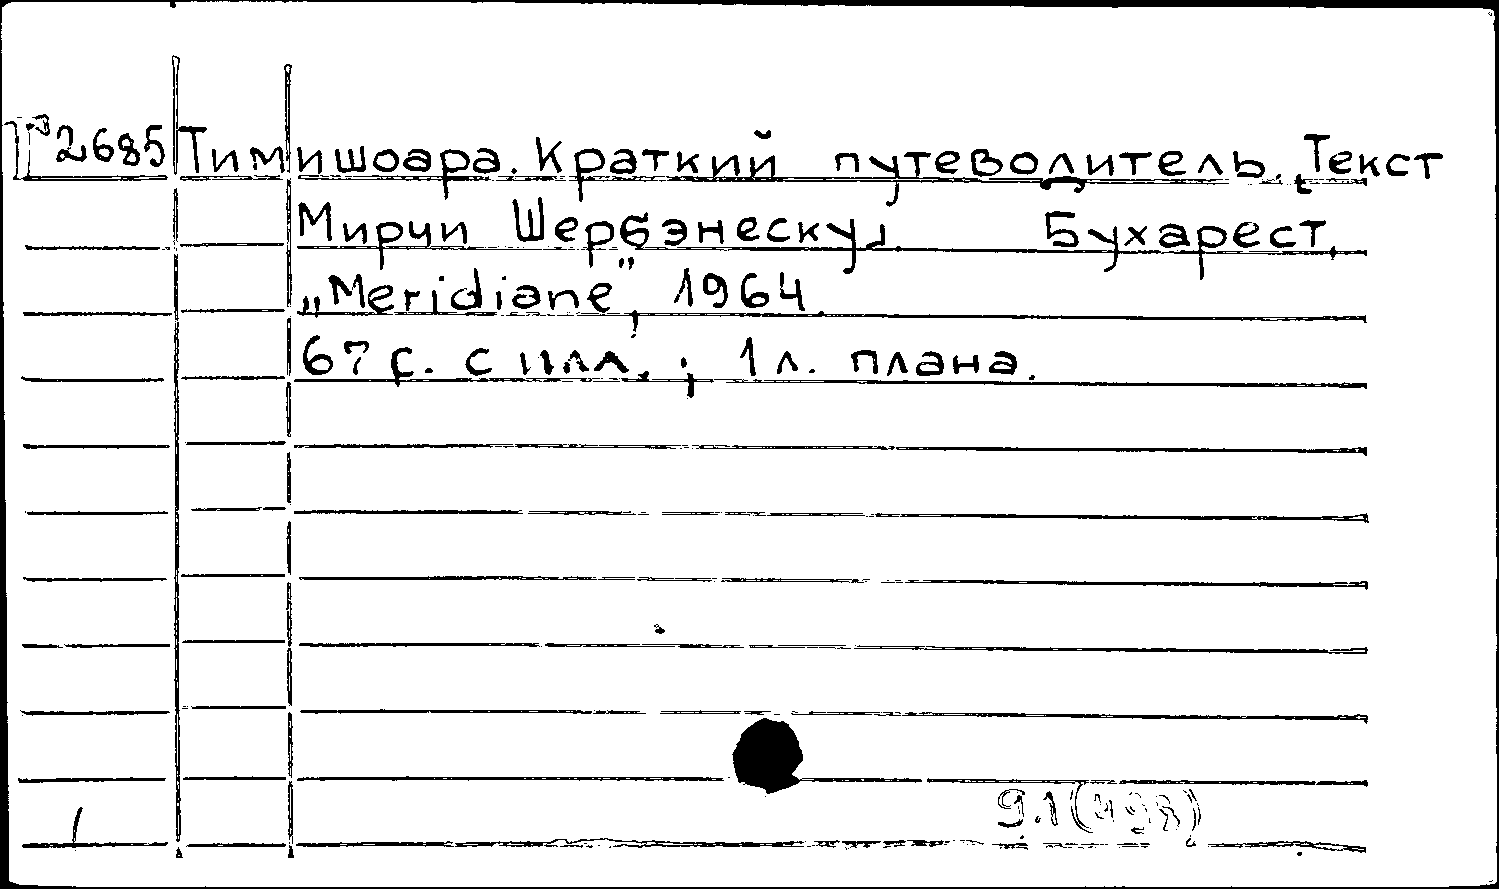 П³2685 Тимишоара. Краткий путеводитель. [Текст
Мирчи Шербэнеску]. Бухарест,
„Meridiane”, 1964.
67 с. с илл.; 1 л. плана.
9.1(498)